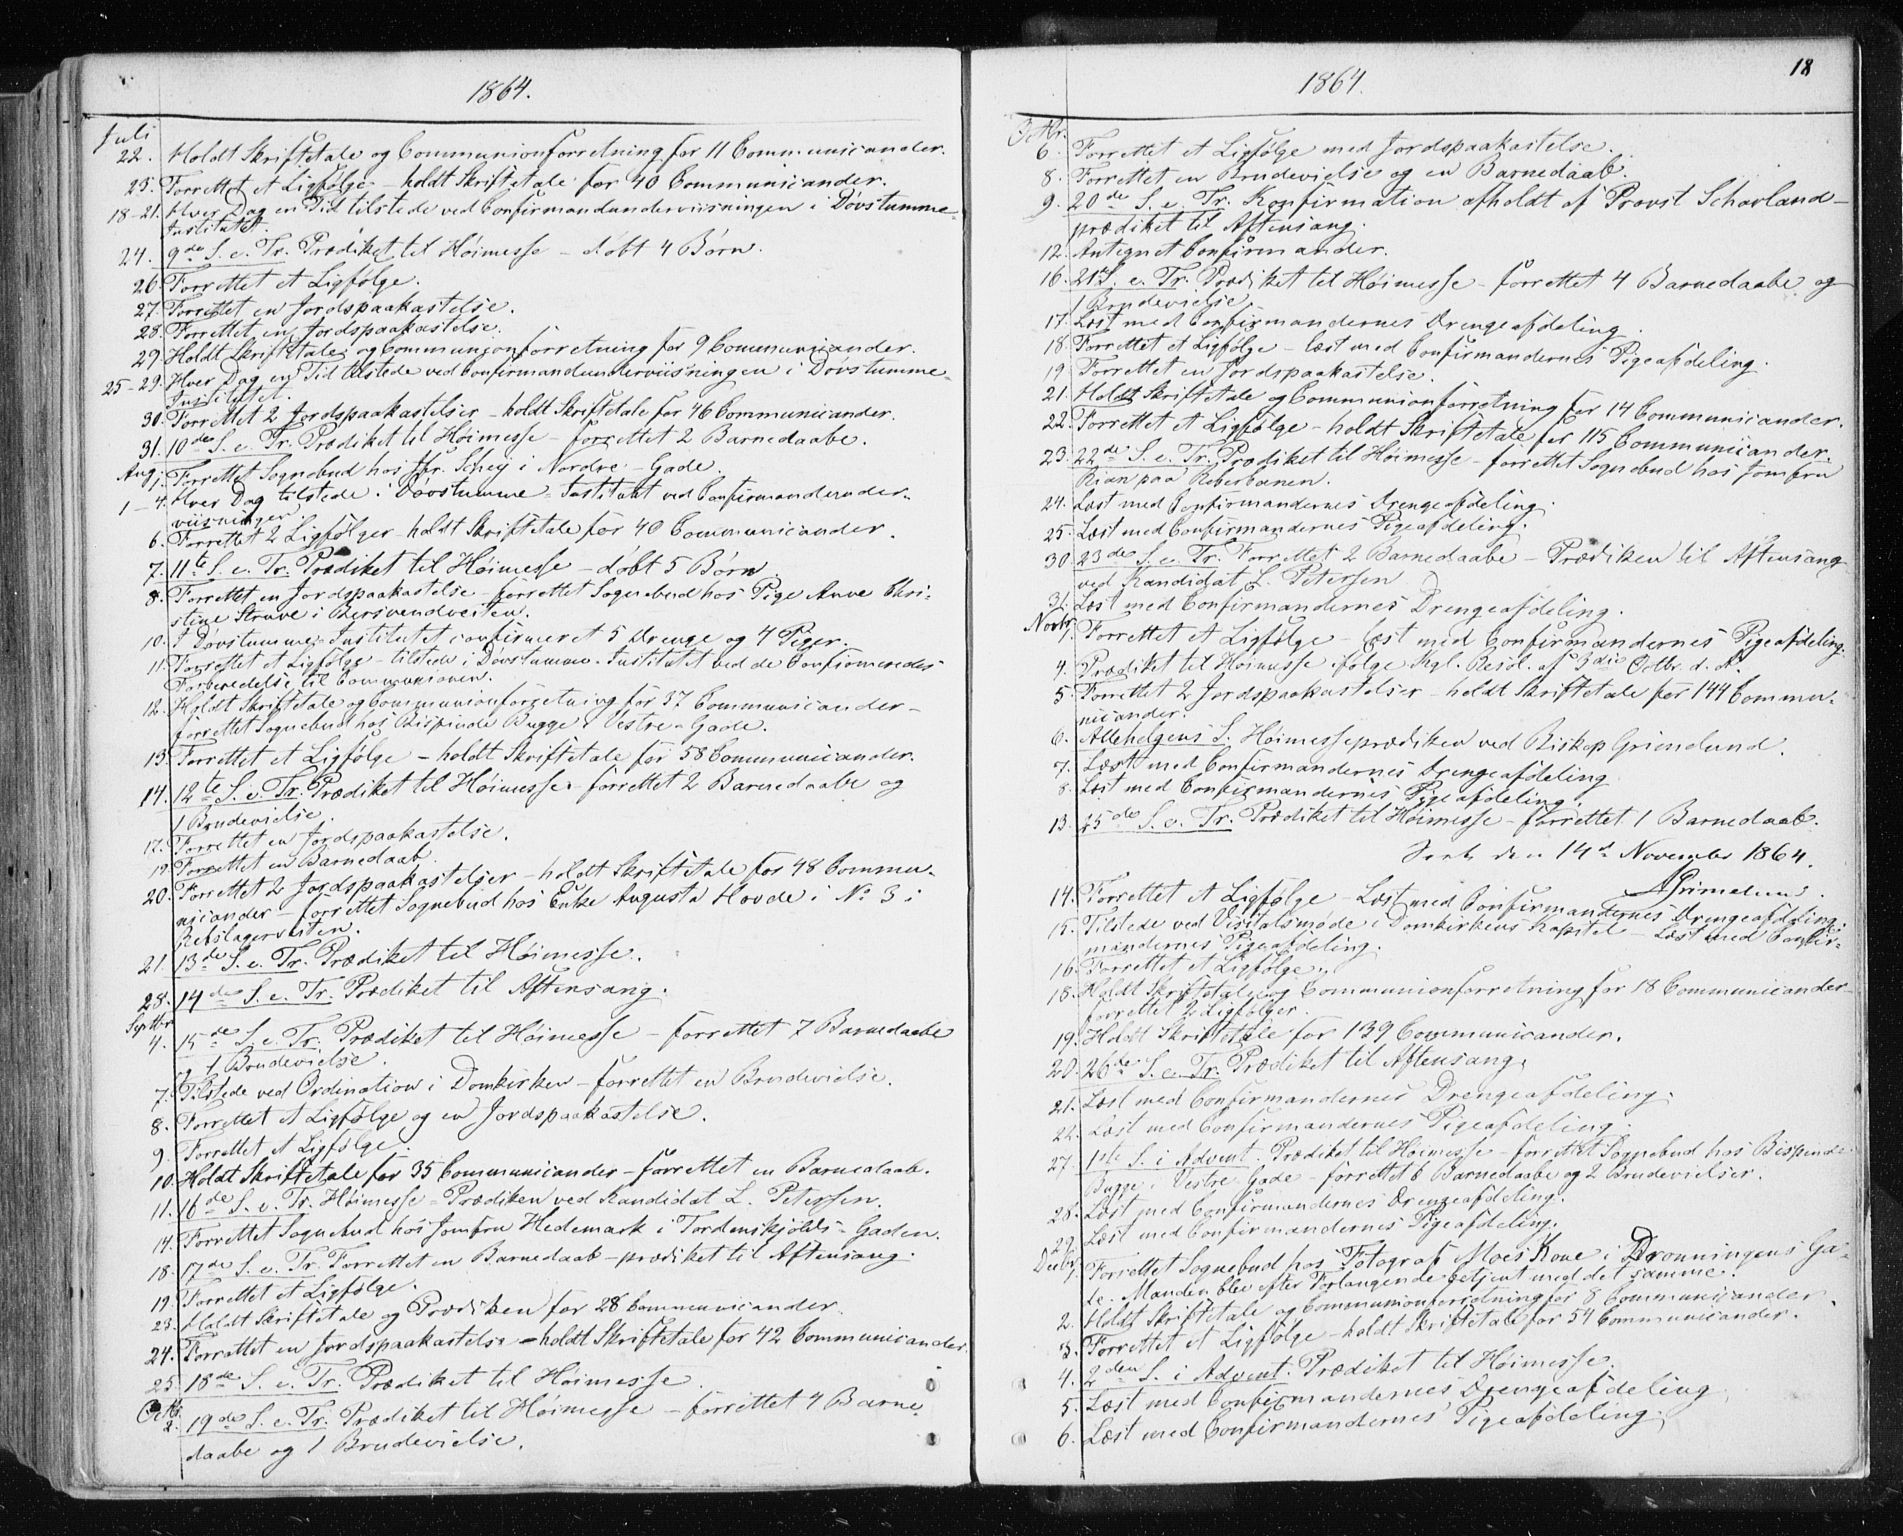 1864.
Juli
22. Holdt Skriftetale og Communionforretning for 11 Communicander.
23. Forrettet et Ligfølge – holdt Skriftetale for 40 Communicander.
18–21. Hver Dag en Tid tilstede ved Confirmandunderviisningen i Døvstumme-
Institutet.
24. 9de S. e. Tr. Prædiket til Høimesse – døbt 4 Børn.
26 Forrettet et Ligfølge.
27. Forrettet en Jordspaakastelse.
28. Forrettet en Jordspaakastelse.
29. Holdt Skriftetale og Communionforretning for 9 Communicander.
25–29. Hver Dag en Tid tilstede ved Confirmandunderviisningen i Døvstumme-
Institutet.
30. Forrettet 2 Jordspaakastelser – holdt Skriftetale for 46 Communicander.
31. 10de S. e. Tr. Prædiket til Høimesse – forrettet 2 Barnedaabe.
Aug. 1. Forrettet Sognebud hos Jfr. Schey i Nordre-Gade.
1–4. Hver Dag tilstede i Døvstumme-Institutet ved Confirmandunder-
viisningen.
6. Forrettet 2 Ligfølger – holdt Skriftetale for 40 Communicander.
7. 11te S. e. Tr. Prædiket til Høimesse – døbt 5 Børn.
8. Forrettet en Jordspaakastelse – forrettet Sognebud hos Pige Anne Chri-
stine Struve i Bersvendveiten.
10. I Døvstumme-Institutet confirmeret 5 Drenge og 4 Piger.
11. Forrettet et Ligfølge – tilstede i Døvstumme-Institutet ved de Confirmeredes
Forberedelse til Communionen.
12. Holdt Skriftetale og Communionforretning for 37 Communicander –
forrettet Sognebud hos Bispinde Bugge i Vestre-Gade.
13. Forrettet et Ligfølge – holdt Skriftetale for 58 Communicander.
14. 12te S. e. Tr. Prædiket til Høimesse – forrettet 2 Barnedaabe og
1 Brudevielse.
17. Forrettet en Jordspaakastelse.
19. Forrettet en Barnedaab.
20. Forrettet 2 Jordspaakastelser – holdt Skriftetale for 48 Commu-
nicander – forrettet Sognebud hos Enke Augusta Hovde i No 3 i
Rebslagerveiten.
21. 13de S. e. Tr. Prædiket til Høimesse.
28. 14de S. e. Tr. Prædiket til Aftensang.
Septbr.
4. 15de S. e. Tr. Prædiket til Høimesse – forrettet 7 Barnedaabe
og 1 Brudevielse.
7. Tilstede ved Ordination i Domkirken – forrettet en Brudevielse.
8. Forrettet et Ligfølge og en Jordspaakastelse.
9. Forrettet et Ligfølge.
10. Holdt Skriftetale for 35 Communicander – forrettet en Barnedaab.
11. 16de S. e. Tr. Høimesse-Prædiken ved Kandidat L. Petersen.
14. Forrettet Sognebud hos Jomfru Hedemark i Tordenskjolds-Gaden.
18. 17de S. e. Tr. Forrettet en Barnedaab – prædiket til Aftensang.
19. Forrettet et Ligfølge.
23. Holdt Skriftetale og Prædiken for 28 Communicander.
24. Forrettet en Jordspaakastelse – holdt Skriftetale for 42 Communicander.
25 18de S. e. Tr. Prædiket til Høimesse.
Octbr.
2. 19de S. e. Tr. Prædiket til Høimesse – forrettet 4 Barne-
daabe og 1 Brudevielse.
1864.
18
Octbr.
6. Forrettet et Ligfølge med Jordspaakastelse.
8. Forrettet en Brudevielse og en Barnedaab.
9. 20de S. e. Tr. Konfirmation afholdt af Provst Schavland –
prædiket til Aftensang.
12. Antegnet Confirmander.
16. 21de S. e. Tr. Prædiket til Høimesse – forrettet 4 Barnedaabe og
1 Brudevielse.
17. Læst med Confirmandernes Drengeafdeling.
18. Forrettet et Ligfølge – læst med Confirmandernes Pigeafdeling.
19 Forrettet en Jordspaakastelse.
21. Holdt Skriftetale og Communionforretning for 14 Communicander.
22. Forrettet et Ligfølge – holdt Skriftetale for 115 Communicander.
23. 22de S. e. Tr. Prædiket til Høimesse – forrettet Sognebud hos Jomfru
Rian paa Reberbanen.
24. Læst med Confirmandernes Drengeafdeling.
25. Læst med Confirmandernes Pigeafdeling.
30. 23de S. e. Tr. Forrettet 2 Barnedaabe – Prædiken til Aftensang
ved Kandidat L. Petersen
31. Læst med Confirmandernes Drengeafdeling.
Novbr. 1. Forrettet et Ligfølge – læst med Confirmandernes Pigeafdeling.
4. Prædiket til Høimesse ifølge Kgl. Resol. af 3die Octbr. d. A.
5. Forrettet 2 Jordspaakastelser – holdt Skriftetale for 144 Commu-
nicander.
6. Allehelgens S. Høimesseprædiken ved Biskop Grimelund.
7. Læst med Confirmandernes Drengeafdeling
8. Læst med Confirmandernes Pigeafdeling.
13. 25de S. e. Tr. Prædiket til Høimesse – forrettet 1 Barnedaab.
Seet den 14de November 1864.
A Grimelund.
14. Forrettet et Ligfølge – Læst med Confirmandernes Drengeafdeling.
15. Tilstede ved Visitatsmøde i Domkirkens Kapitel – Læst med Confir-
mandernes Pigeafdeling.
16. Forrettet et Ligfølge.
18. Holdt Skriftetale og Communionforretning for 18 Communicander –
forrettet 2 Ligfølger.
19. Holdt Skriftetale for 139 Communicander.
20. 26de S. e. Tr. Prædiket til Aftensang.
21. Læst med Confirmandernes Drengeafdeling.
22. Læst med Confirmandernes Pigeafdeling.
27 1ste S. i Advent. Prædiket til Høimesse – forrettet Sognebud hos Bispinde
Bugge i Vestre Gade – forrettet 6 Barnedaabe og 2 Brudevielser.
28. Læst med Confirmandernes Drengeafdeling.
29. Læst med Confirmandernes Pigeafdeling.
Decbr. 1. Forrettet Sognebud hos Fotograf Moes Kone i Dronningens Ga-
de. Manden blev efter Forlangende betjent med det samme.
2. Holdt Skriftetale og Communionforretning for 8 Communicander.
3. Forrettet et Ligfølge – holdt Skriftetale for 54 Communicander.
4. 2den S. i Advent. Prædiket til Høimesse.
5. Læst med Confirmandernes Drengeafdeling
6. Læst med Confirmandernes Pigeafdeling.